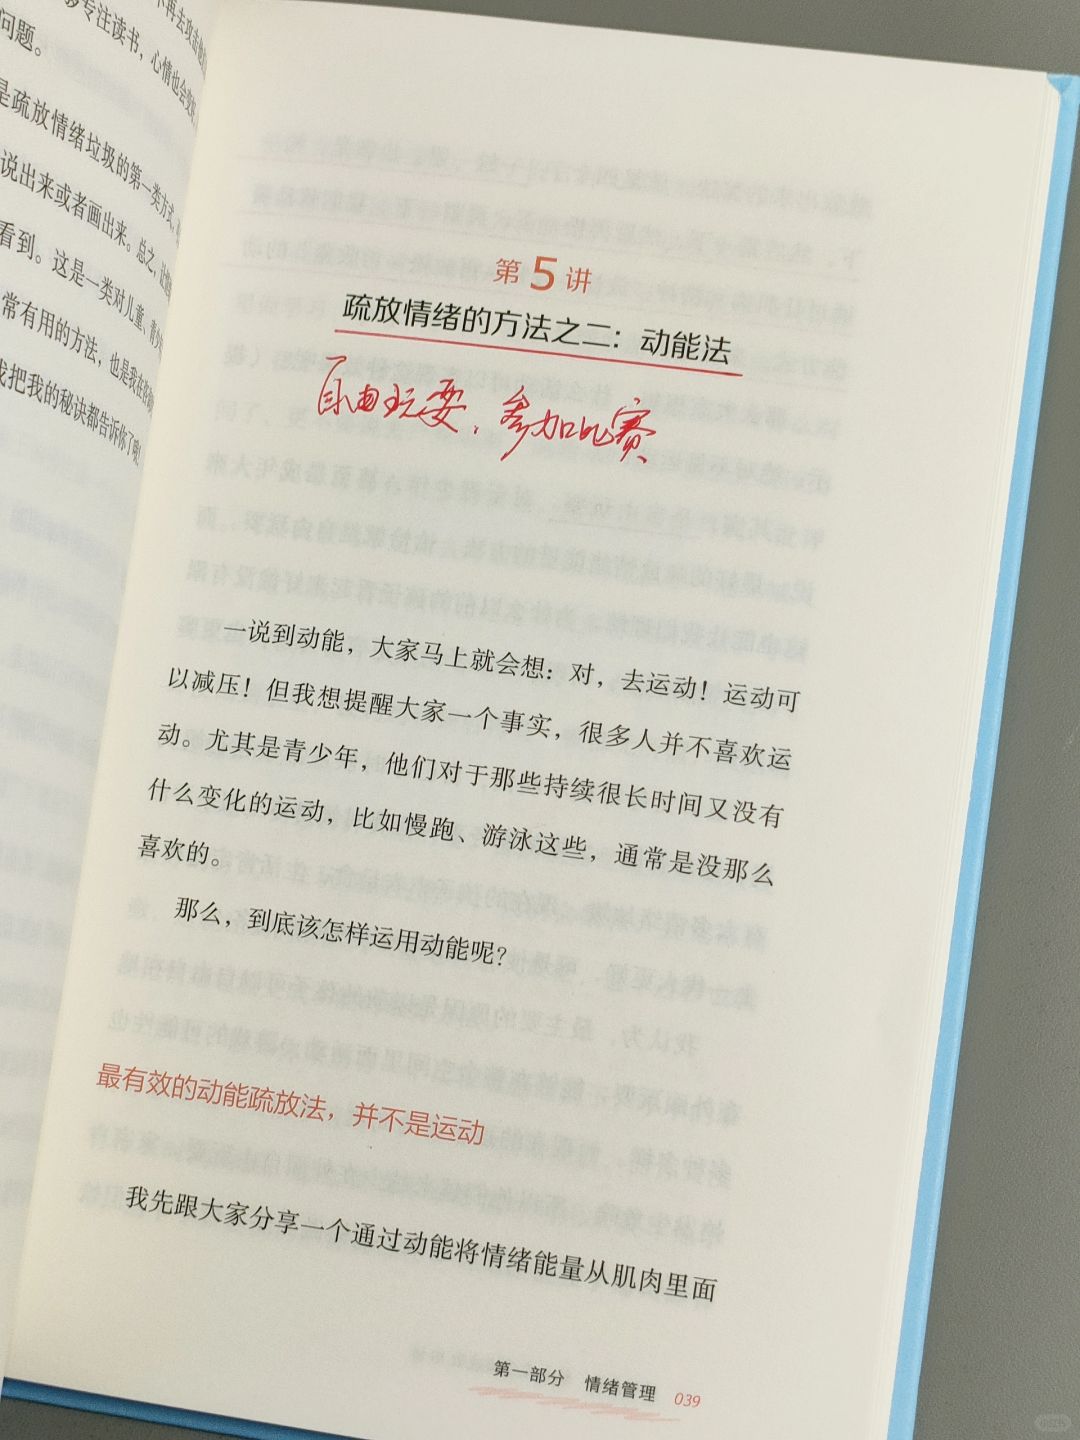 再去攻击
专注读书，心情也会变
问题。
是疏放情绪垃圾的第一类方式，
说出来或者画出来。总之，让
看到。这是一类对儿童、青少
常有用的方法，也是我在
我把我的秘诀都告诉你了啦！
第5讲
疏放情绪的方法之二：动能法
自由玩耍，参加比赛
一说到动能，大家马上就会想：对，去运动！运动可
以减压！但我想提醒大家一个事实，很多人并不喜欢运
动。尤其是青少年，他们对于那些持续很长时间又没有
什么变化的运动，比如慢跑、游泳这些，通常是没那么
喜欢的。
那么，到底该怎样运用动能呢？
最有效的动能疏放法，并不是运动
我先跟大家分享一个通过动能将情绪能量从肌肉里面
第一部分 情绪管理 039